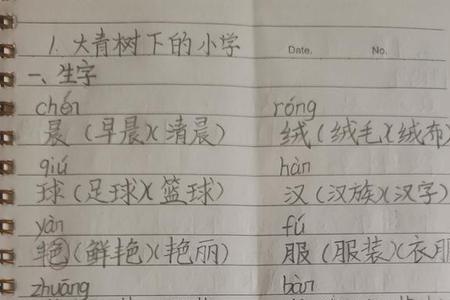 1. 大青树下的小学 Date. No.
一、生字
chén róng
晨（早晨)(清晨） 绒（绒毛)(绒布)
qiú hàn
球（足球)(篮球） 汉（汉族)(汉字)
yàn fú
艳（鲜艳)(艳丽） 服（服装)(衣服
zhuāng bàn